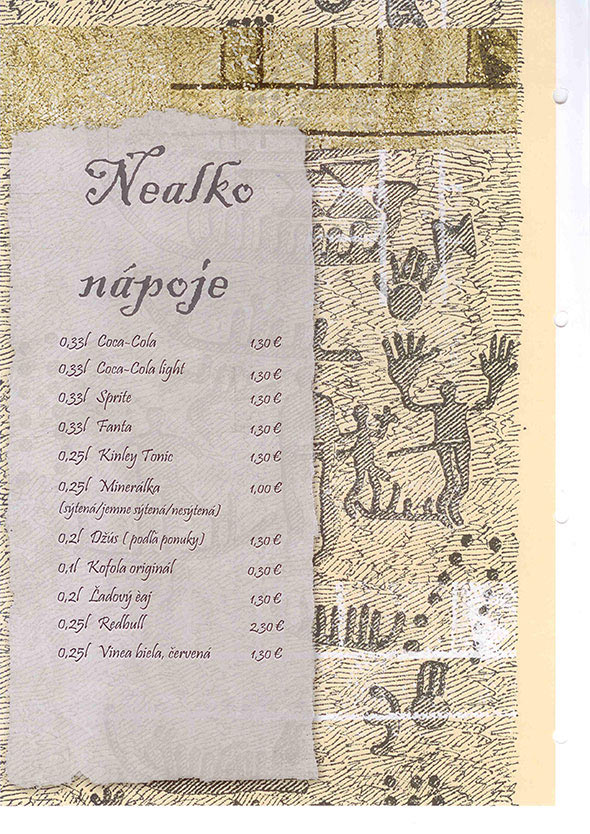 Nealko
nápoje
0,33l Coca-Cola 1,30 €
0,33l Coca-Cola light 1,30 €
0,33l Sprite 1,30 €
0,33l Fanta 1,30 €
0,25l Kinley Tonic 1,30 €
0,25l Minerálka 1,00 €
(sýtená/jemne sýtená/nesýtená)
0,2l Džús ( podľa ponuky) 1,30 €
0,1l Kofola originál 0,30 €
0,2l Ľadový èaj 1,30 €
0,25l Redbull 2,30 €
0,25l Vinea biela, červená 1,30 €